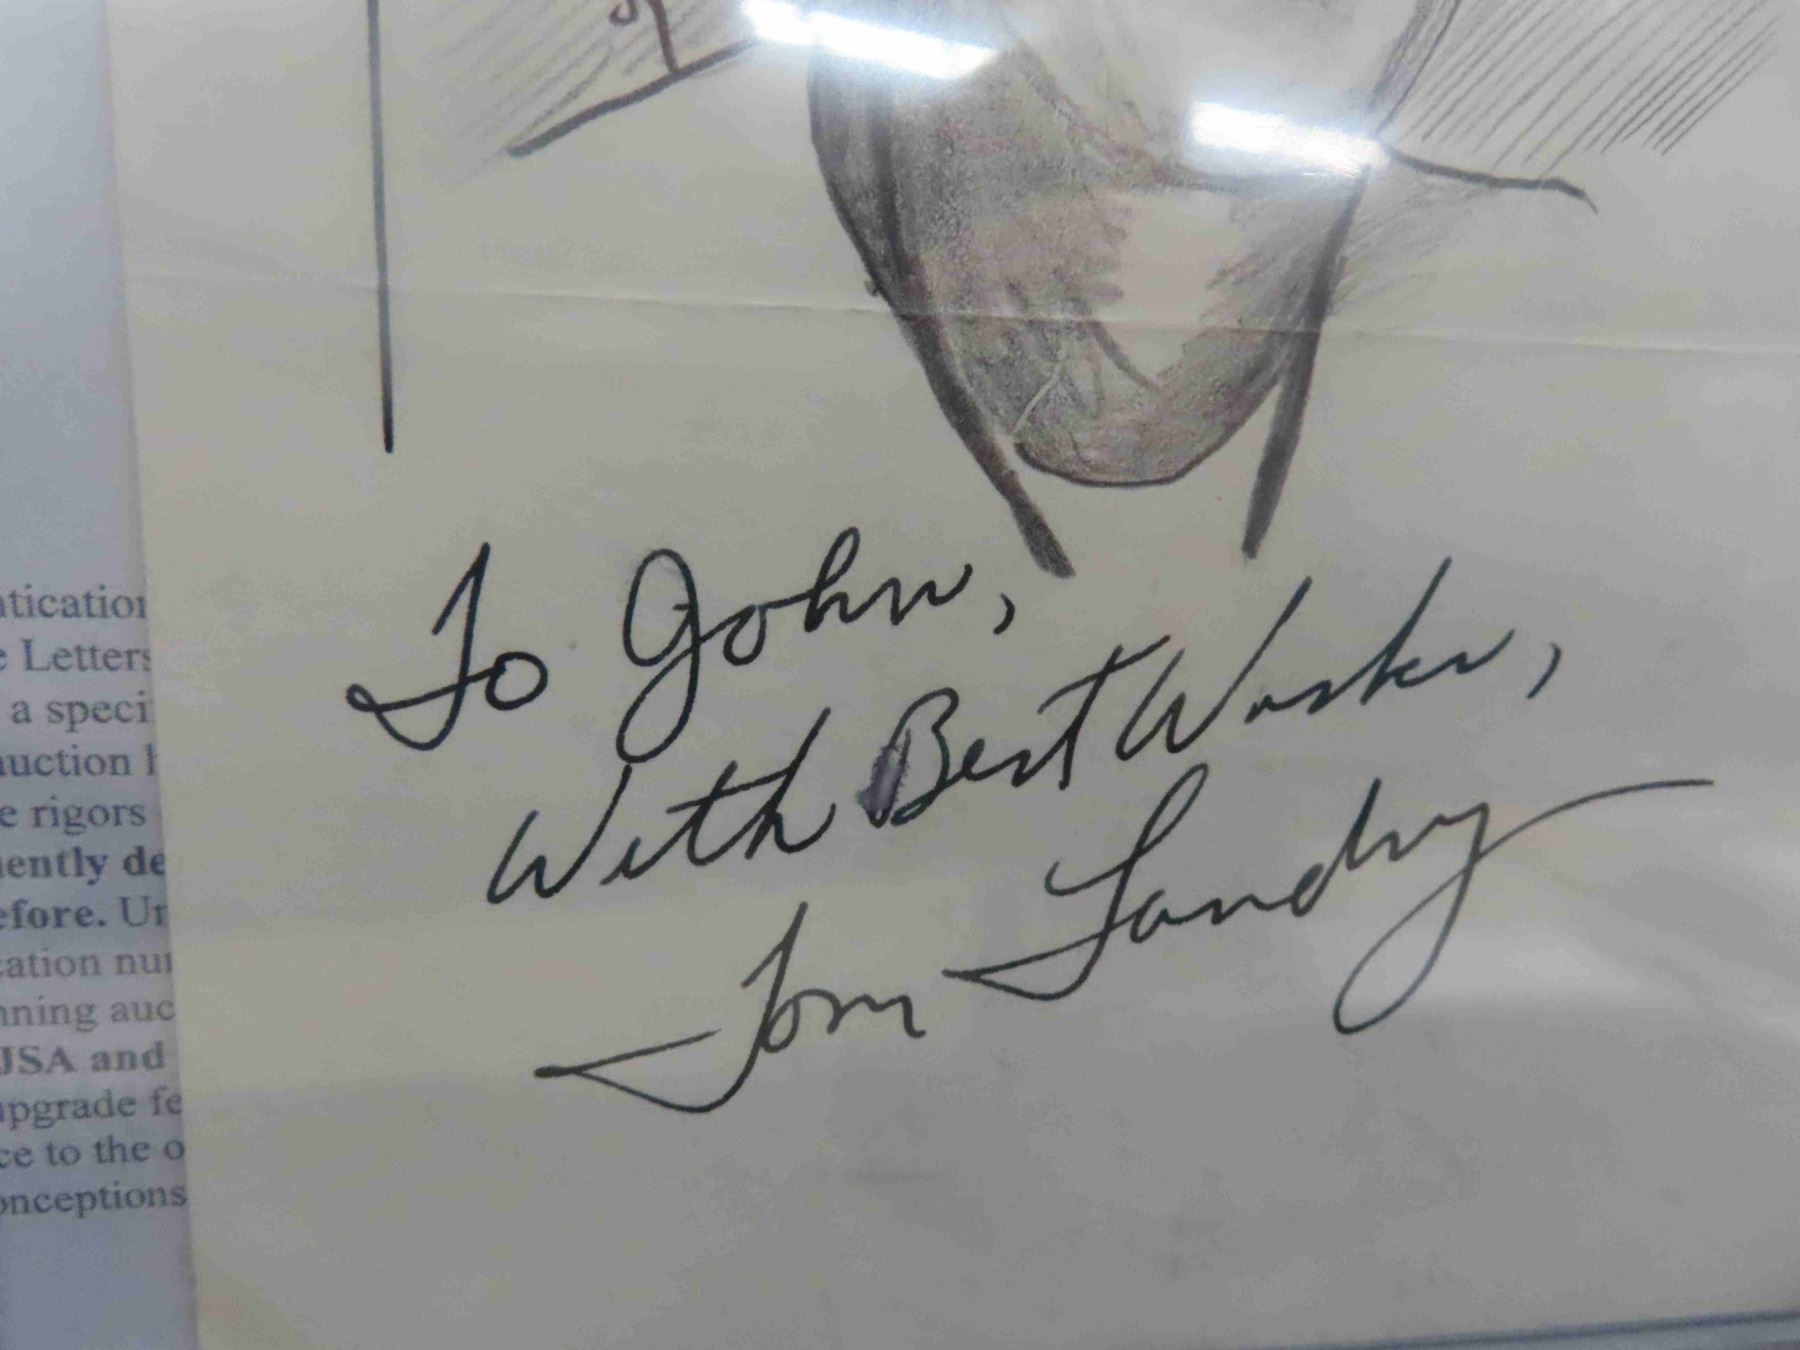 To John,
With Best Wishes,
Tom Landry
e Letters
a speci
auction
e rigors
uently de
efore. Un
cation nu
nning auc
JSA and
upgrade fe
ce to the o
onceptions